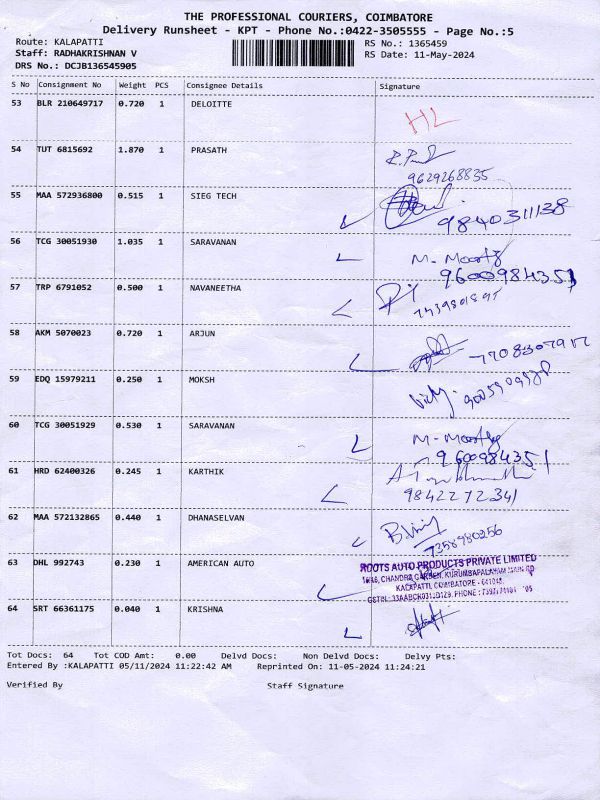 THE PROFESSIONAL COURIERS, COIMBATORE
Delivery Runsheet - KPT - Phone No.:0422-3505555 - Page No.:5
Route: KALAPATTI RS No.: 1365459
Staff: RADHAKRISHNAN V RS Date: 11-May-2024
DRS No.: DCJB136545905
S No Consignment No Weight PCS Consignee Details Signature
53 BLR 210649717 0.720 1 DELOITTE HL
54 TUT 6815692 1.870 1 PRASATH
9629268835
55 MAA 572936800 0.515 1 SIEG TECH
9840311138
56 TCG 30051930 1.035 1 SARAVANAN M. Moorthy
9600984351
57 TRP 6791052 0.500 1 NAVANEETHA
58 AKM 5070023 0.720 1 ARJUN
59 EDQ 15979211 0.250 1 MOKSH
60 TCG 30051929 0.530 1 SARAVANAN M. Moorthy
9600984351
61 HRD 62400326 0.245 1 KARTHIK
9842272341
62 MAA 572132865 0.440 1 DHANASELVAN
7358980256
63 DHL 992743 0.230 1 AMERICAN AUTO
ROOTS AUTO PRODUCTS PRIVATE LIMITED
KALAPATTI, COIMBATORE - 641048.
64 SRT 66361175 0.040 1 KRISHNA
Tot Docs: 64 Tot COD Amt: 0.00 Delvd Docs: Non Delvd Docs: Delvy Pts:
Entered By :KALAPATTI 05/11/2024 11:22:42 AM Reprinted On: 11-05-2024 11:24:21
Verified By Staff Signature